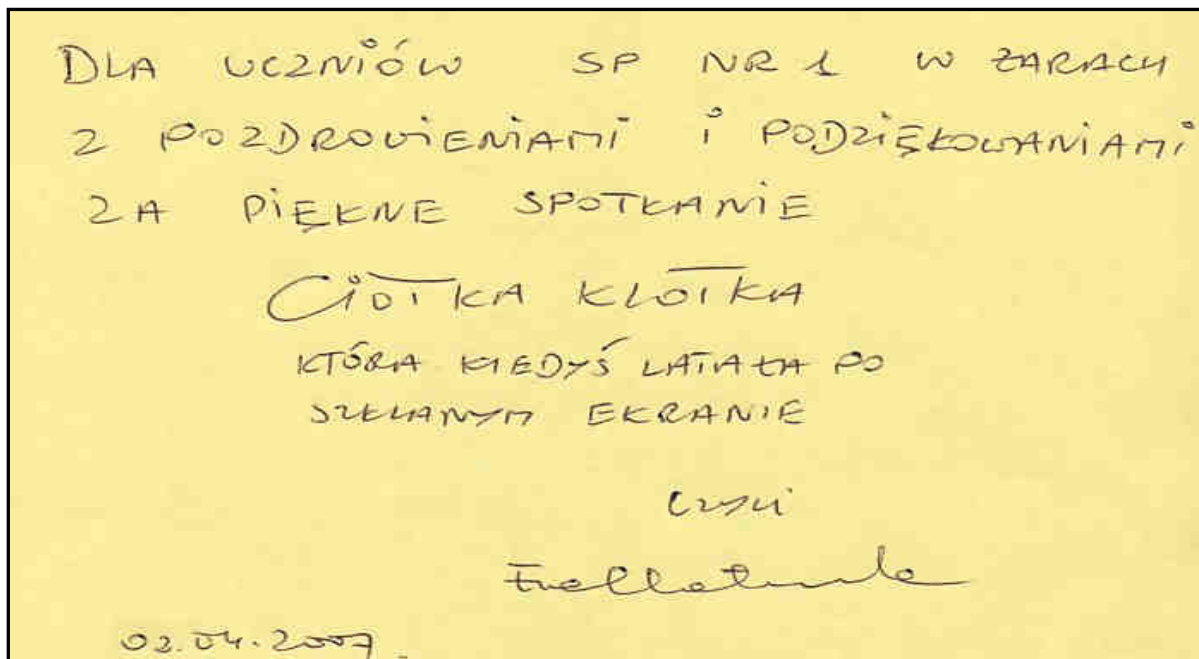 DLA UCZNIÓW SP NR 1 W ŻARACH
Z POZDROWIENIAMI I PODZIĘKOWANIAMI
ZA PIĘKNE SPOTKANIE
CIOTKA KLOTKA
KTÓRA KIEDYŚ LATAŁA PO
SZKLANYM EKRANIE
czyli
02.04.2007.